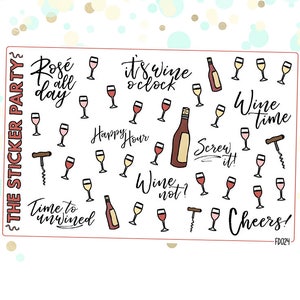 THE STICKER PARTY
Rosé
all
day
it's wine
o'clock
Wine
time
Happy
Hour
Screw
it!
Wine
not?
Time to
unwined
Cheers!
FD024